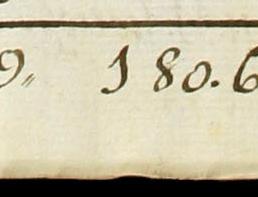 9,, 180.6